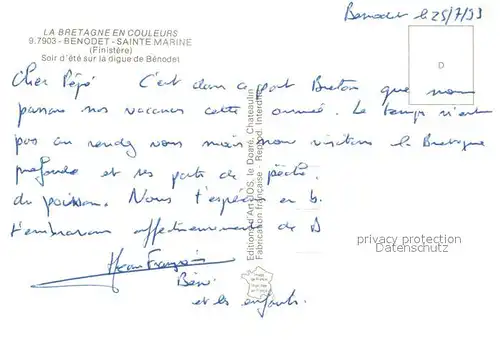 LA BRETAGNE EN COULEURS
9.7903 - BENODET - SAINTE MARINE
(Finistère)
Soir d'été sur la digue de Bénodet
Bénodet le 25/7/93
D
Cher Pépé C'est dans ce port Breton que nous
passons nos vacances cette année. Le temps n'est
pas au rendez vous mais nous visitons la Bretagne
profonde et ses ports de pêche.
du poisson. Nous t'espérons en b.
t'embrassons affectueusement de
Jean François
Béné
et les enfants.
Editions d'Art JOS, le Doaré, Chateaulin
Fabrication française - Reprod. Interdite
privacy protection
Datenschutz